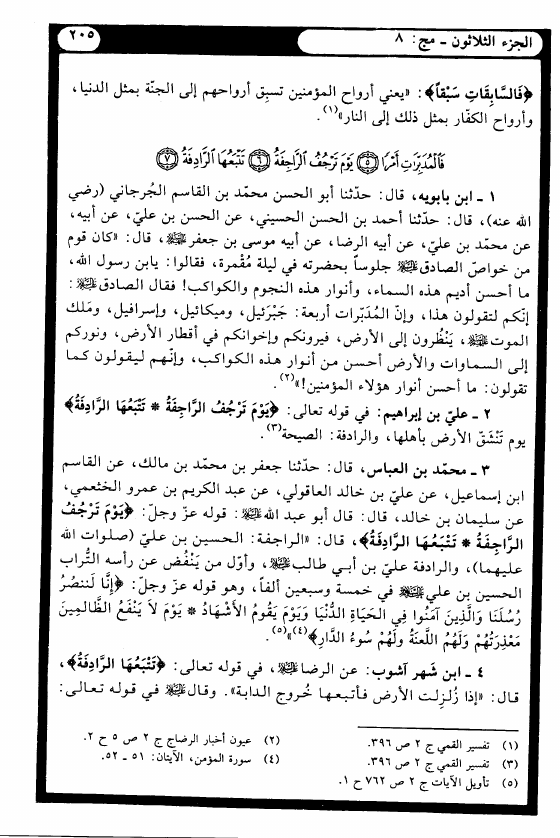 الجزء الثلاثون - مج: ٨
٢٠٥
﴿فَالسَّابِقَاتِ سَبْقاً﴾: «يعني أرواح المؤمنين تسبِق أرواحهم إلى الجنّة بمثل الدنيا،
وأرواح الكفّار بمثل ذلك إلى النار»(١).
فَالْمُدَبِّرَاتِ أَمْرًا ﴿٥﴾ يَوْمَ تَرْجُفُ الرَّاجِفَةُ ﴿٦﴾ تَتْبَعُهَا الرَّادِفَةُ ﴿٧﴾
١ - ابن بابويه، قال: حدّثنا أبو الحسن محمّد بن القاسم الجُرجاني (رضي
الله عنه)، قال: حدّثنا أحمد بن الحسن الحسيني، عن الحسن بن عليّ، عن أبيه،
عن محمّد بن عليّ، عن أبيه الرضا، عن أبيه موسى بن جعفر عليه السلام، قال: «كان قوم
من خواصّ الصادق عليه السلام جلوساً بحضرته في ليلة مُقْمرة، فقالوا: يابن رسول الله،
ما أحسن أديم هذه السماء، وأنوار هذه النجوم والكواكب! فقال الصادق عليه السلام:
إنّكم لتقولون هذا، وإنّ المُدَبّرات أربعة: جَبْرَئيل، وميكائيل، وإسرافيل، ومَلَك
الموت عليه السلام، يَنْظُرون إلى الأرض، فيرونكم وإخوانكم في أقطار الأرض، ونوركم
إلى السماوات والأرض أحسن من أنوار هذه الكواكب، وإنّهم ليقولون كما
تقولون: ما أحسن أنوار هؤلاء المؤمنين!»(٢).
٢ - عليّ بن إبراهيم: في قوله تعالى: ﴿يَوْمَ تَرْجُفُ الرَّاجِفَةُ * تَتْبَعُهَا الرَّادِفَةُ﴾
يوم تَنْشَقّ الأرض بأهلها، والرادفة: الصيحة(٣).
٣ - محمّد بن العباس، قال: حدّثنا جعفر بن محمّد بن مالك، عن القاسم
ابن إسماعيل، عن عليّ بن خالد العاقولي، عن عبد الكريم بن عمرو الخثعمي،
عن سليمان بن خالد، قال: قال أبو عبد الله عليه السلام: قوله عزّ وجلّ: ﴿يَوْمَ تَرْجُفُ
الرَّاجِفَةُ * تَتْبَعُهَا الرَّادِفَةُ﴾، قال: «الراجفة: الحسين بن عليّ (صلوات الله
عليهما)، والرادفة عليّ بن أبي طالب عليه السلام، وأوّل من يَنْفُض عن رأسه التُّراب
الحسين بن علي عليه السلام في خمسة وسبعين ألفاً، وهو قوله عزّ وجلّ: ﴿إِنَّا لَنَنصُرُ
رُسُلَنَا وَالَّذِينَ آمَنُوا فِي الْحَيَاةِ الدُّنْيَا وَيَوْمَ يَقُومُ الأَشْهَادُ * يَوْمَ لاَ يَنْفَعُ الظَّالِمِينَ
مَعْذِرَتُهُمْ وَلَهُمُ اللَّعنَةُ ولَهُمْ سُوءُ الدَّارِ﴾(٤)»(٥).
٤ - ابن شهر آشوب: عن الرضا عليه السلام، في قوله تعالى: ﴿تَتْبَعُهَا الرَّادِفَةُ﴾،
قال: «إذا زُلزِلت الأرض فأتبعها خُروج الدابة». وقال عليه السلام في قوله تعالى:
(١) تفسير القمي ج ٢ ص ٣٩٦.
(٢) عيون أخبار الرضاج ج ٢ ص ٥ ح ٢.
(٣) تفسير القمي ج ٢ ص ٣٩٦.
(٤) سورة المؤمن، الآيتان: ٥١ - ٥٢.
(٥) تأويل الآيات ج ٢ ص ٧٦٢ ح ١.